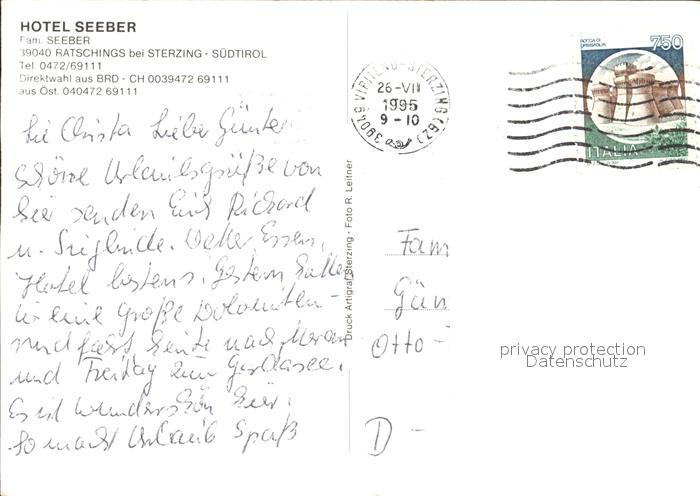 HOTEL SEEBER
Fam. SEEBER
39040 RATSCHINGS bei STERZING - SÜDTIROL
Tel. 0472/69111
Direktwahl aus BRD - CH 0039472 69111
aus Öst. 040472 69111
Lie Christa Lieber Günter
schöne Urlaubsgrüße von
hier senden Euch Richard
u. Sieglinde. Wetter, Essen,
Hotel bestens. Gestern hatten
wir eine große Dolomiten-
rundfahrt heute nach Meran
und Freitag zum Gardasee.
Es ist wunderschön hier.
So macht Urlaub Spaß
Druck Artigraf Sterzing - Foto R. Leitner
39049 VIPITENO-STERZING (BZ)
26-VII
1995
9-10
ROCCA DI
URBISAGLIA
750
ITALIA
Fam
Gün
Otto-
D-
privacy protection
Datenschutz